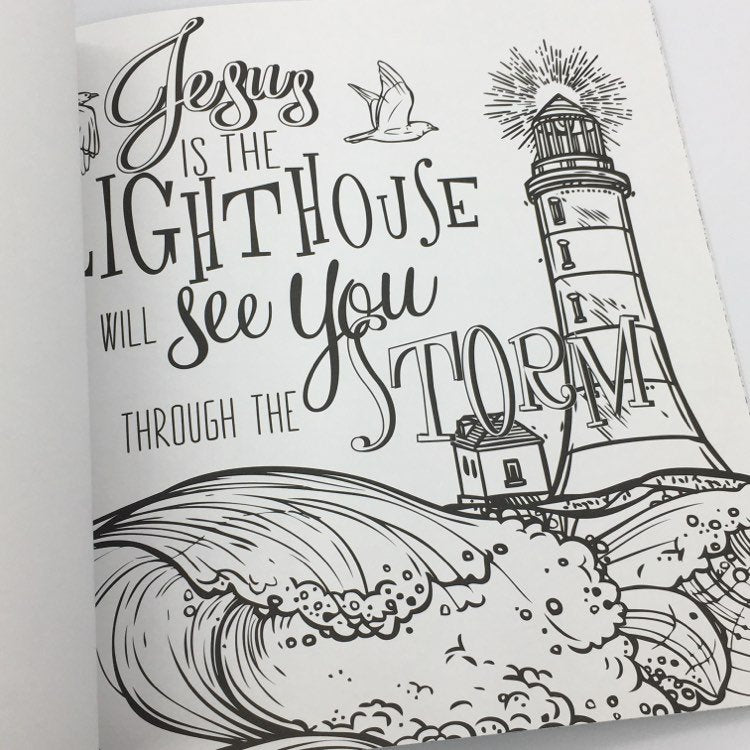 Jesus
IS THE
LIGHTHOUSE
WILL see you
THROUGH THE STORM